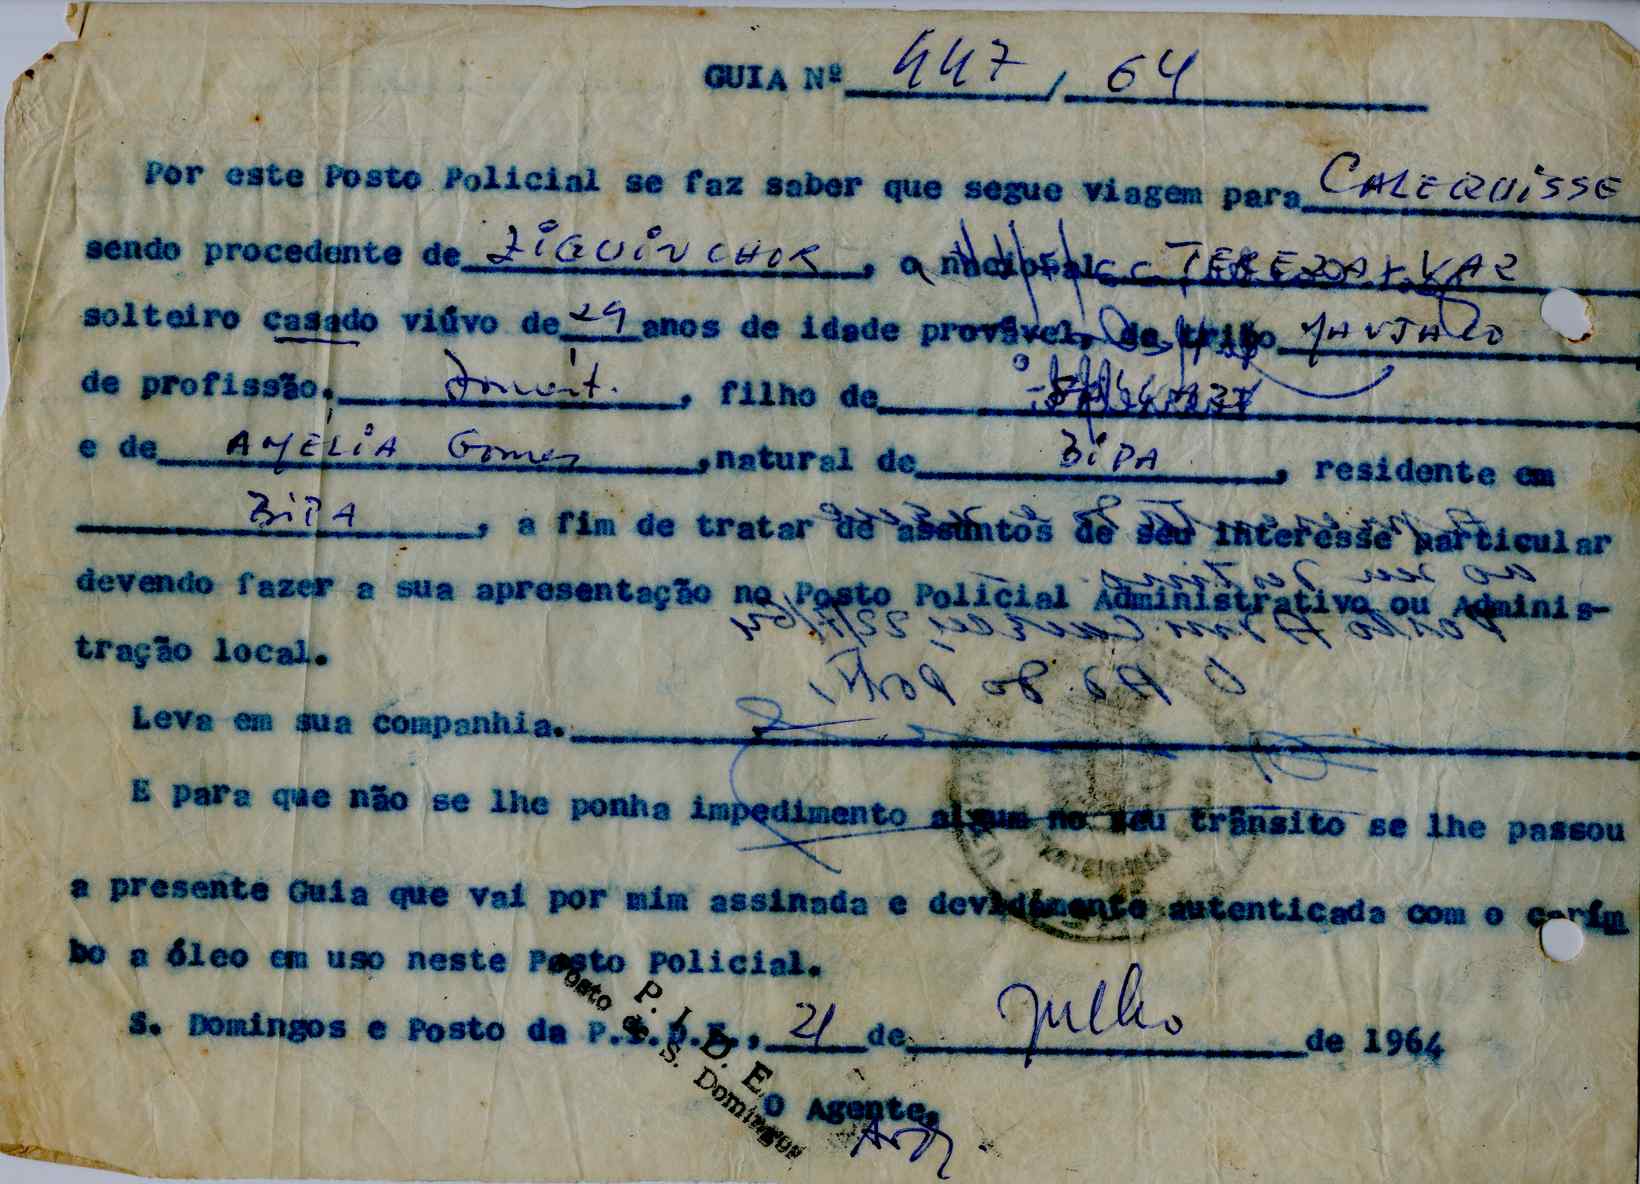 GUIA Nº 447 / 64
Por este Posto Policial se faz saber que segue viagem para CALEQUISSE
sendo procedente de ZiGUiNCHOR, o nacional TEREZA VAZ
solteiro casado viúvo de 29 anos de idade provável, da tribo MANJACO
de profissão. Domést., filho de
e de AMÉLiA Gomes, natural de BiPA, residente em
BiPA, a fim de tratar de assuntos de seu interesse particular
devendo fazer a sua apresentação no Posto Policial Administrativo ou Adminis-
tração local.
Leva em sua companhia.
E para que não se lhe ponha impedimento algum no seu trânsito se lhe passou
a presente Guia que vai por mim assinada e devidamente autenticada com o carím
bo a óleo em uso neste Posto Policial.
S. Domingos e Posto da P.I.D.E., 21 de Julho de 1964
P. I. D. E.
Posto de S. Domingos
O Agente,